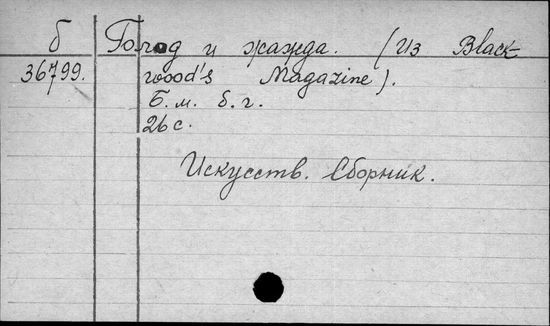 б Голод и жажда. (Из Black-
36799. wood's Magazine).
Б. м. б. г.
26 с.
Искусств. Сборник.